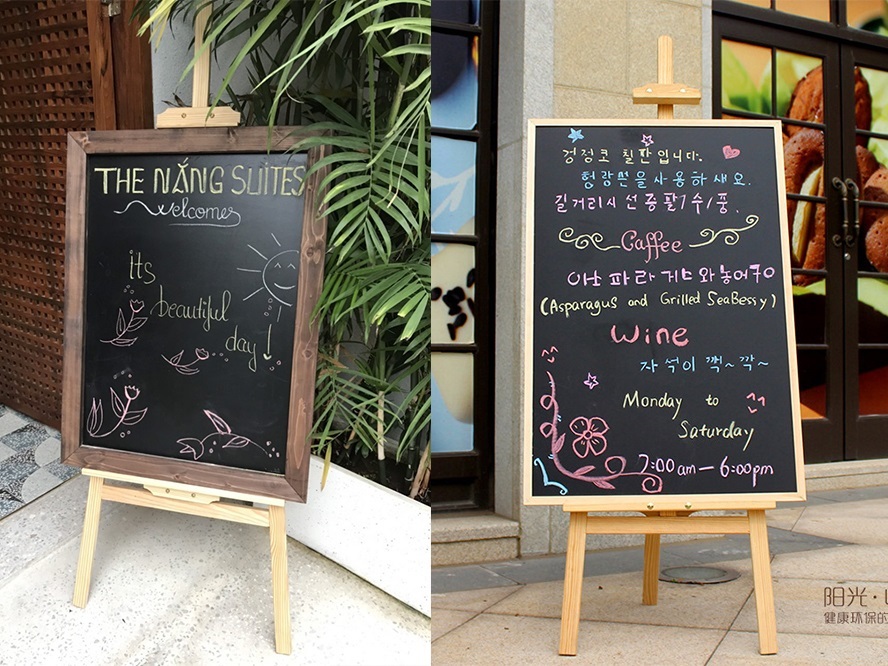 THE NĂNG SUITES
Welcomes
its
beautiful
day!
겅정코 칠판입니다.
형랑펜을사용하새요.
길거리시선증팔1수1풍.
Caffee
아스파라거스와농어구이
(Asparagus and Grilled SeaBessy)
Wine
자석이 찍~깍~
Monday to
Saturday
7:00am—6:00pm
阳光·
健康环保的